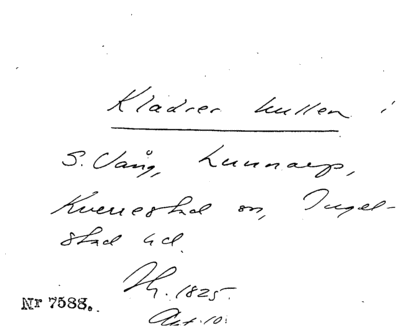 Kladrer kullen i
S. Vång, Lunnarp,
Kverrestad sn, Ingel-
stad hd.
Th. 1825.
Akt. 10.
Nr 7588.